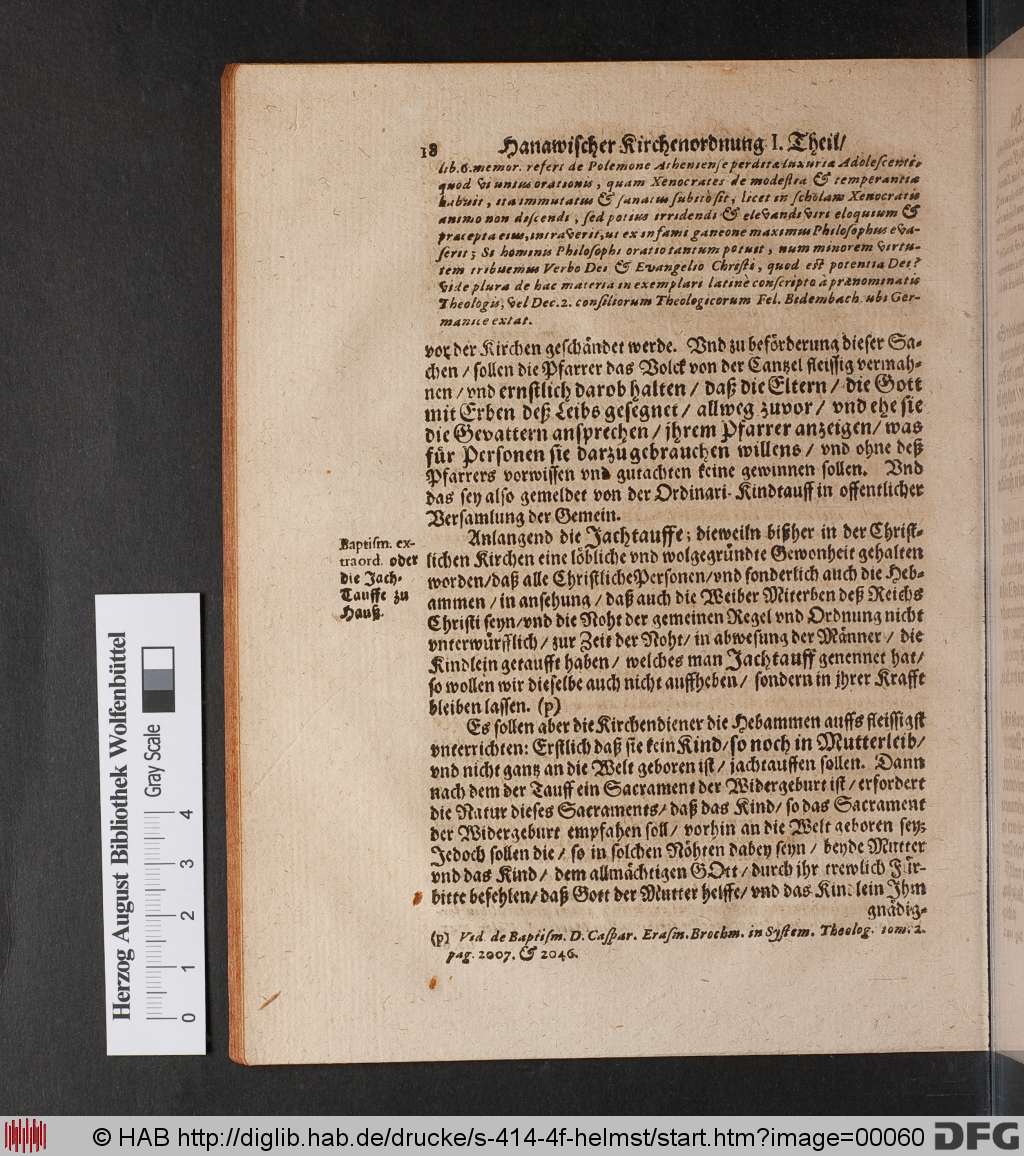 18 Hanawischer Kirchenordnung I. Theil/
lib. 6. memor. refert de Polemone Atheniense perditæ luxuriæ Adolescente,
quod vi unius orationis, quam Xenocrates de modestia & temperantia
habuit, ita immutatus & sanatus subitò sit, licet in scholam Xenocratis
animo non discendi, sed potius irridendi & elevandi viri eloquium &
præcepta eius, intraverit, ut ex infami ganeone maximus Philosophus eva-
serit; Si hominis Philosophi oratio tantum potuit, num minorem virtu-
tem tribuemus Verbo Dei & Evangelio Christi, quod est potentia Dei?
vide plura de hac materia in exemplari latinè conscripto à prænominatis
Theologis, vel Dec. 2. consiliorum Theologicorum Fel. Bidembach. ubi Ger-
manice extat.
vor der Kirchen geschändet werde. Vnd zu beförderung dieser Sa-
chen / sollen die Pfarrer das Volck von der Cantzel fleissig vermah-
nen / vnd ernstlich darob halten / daß die Eltern / die Gott
mit Erben deß Leibs gesegnet / allweg zuvor / vnd ehe sie
die Gevattern ansprechen / jhrem Pfarrer anzeigen / was
für Personen sie darzu gebrauchen willens / vnd ohne deß
Pfarrers vorwissen vnd gutachten keine gewinnen sollen. Vnd
das sey also gemeldet von der Ordinari-Kindtauff in offentlicher
Versamlung der Gemein.
Baptism. ex-
traord. oder
die Jach-
Tauffe zu
Hauß.
Anlangend die Jachtauffe; dieweiln bißher in der Christ-
lichen Kirchen eine löbliche vnd wolgegründte Gewonheit gehalten
worden/daß alle Christliche Personen/vnd sonderlich auch die Heb-
ammen / in ansehung / daß auch die Weiber Miterben deß Reichs
Christi seyn/vnd die Noht der gemeinen Regel vnd Ordnung nicht
vnterwürfflich / zur Zeit der Noht/ in abwesung der Männer / die
Kindlein getaufft haben / welches man Jachtauff genennet hat/
so wollen wir dieselbe auch nicht auffheben / sondern in jhrer Krafft
bleiben lassen. (p)
Es sollen aber die Kirchendiener die Hebammen auffs fleissigst
vnterrichten: Erstlich daß sie kein Kind/ so noch in Mutterleib/
vnd nicht gantz an die Welt geboren ist / jachtauffen sollen. Dann
nach dem der Tauff ein Sacrament der Widergeburt ist / erfordert
die Natur dieses Sacraments / daß das Kind / so das Sacrament
der Widergeburt empfahen soll / vorhin an die Welt geboren sey;
Jedoch sollen die / so in solchen Nöhten dabey seyn / beyde Mutter
vnd das Kind / dem allmächtigen GOtt / durch jhr trewlich Für-
bitte befehlen/ daß Gott der Mutter helffe/ vnd das Kindlein Jhm
gnädig-
(p) Vid. de Baptism. D. Caspar. Erasm. Brochm. in System. Theolog. tom. 2.
pag. 2007. & 2046.
Herzog August Bibliothek Wolfenbüttel
Gray Scale
0 1 2 3 4
© HAB http://diglib.hab.de/drucke/s-414-4f-helmst/start.htm?image=00060 DFG